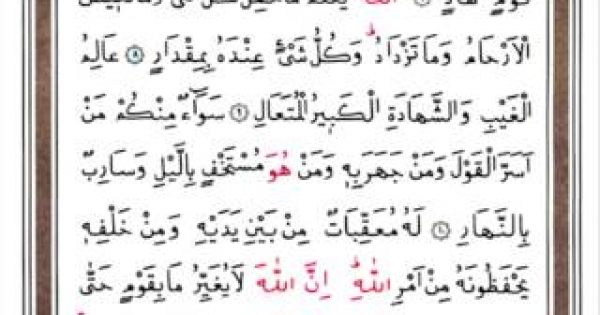 قَوْمٍ هَادٍ ۟ اَللّٰهُ يَعْلَمُ مَا تَحْمِلُ كُلُّ اُنْثٰى وَمَا تَغ۪يضُ
الْاَرْحَامُ وَمَا تَزْدَادُۜ وَكُلُّ شَيْءٍ عِنْدَهُ بِمِقْدَارٍ ﴿٨﴾ عَالِمُ
الْغَيْبِ وَالشَّهَادَةِ الْكَب۪يرُ الْمُتَعَالِ ﴿٩﴾ سَوَٓاءٌ مِنْكُمْ مَنْ
اَسَرَّ الْقَوْلَ وَمَنْ جَهَرَ بِه۪ وَمَنْ هُوَ مُسْتَخْفٍ بِالَّيْلِ وَسَارِبٌ
بِالنَّهَارِ ﴿١٠﴾ لَهُ مُعَقِّبَاتٌ مِنْ بَيْنِ يَدَيْهِ وَمِنْ خَلْفِه۪
يَحْفَظُونَهُ مِنْ اَمْرِ اللّٰهِۜ اِنَّ اللّٰهَ لَا يُغَيِّرُ مَا بِقَوْمٍ حَتّٰى